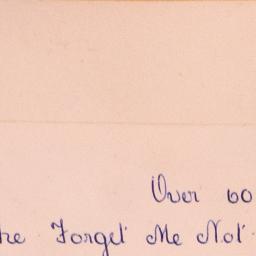 Over 60
he Forget Me Not